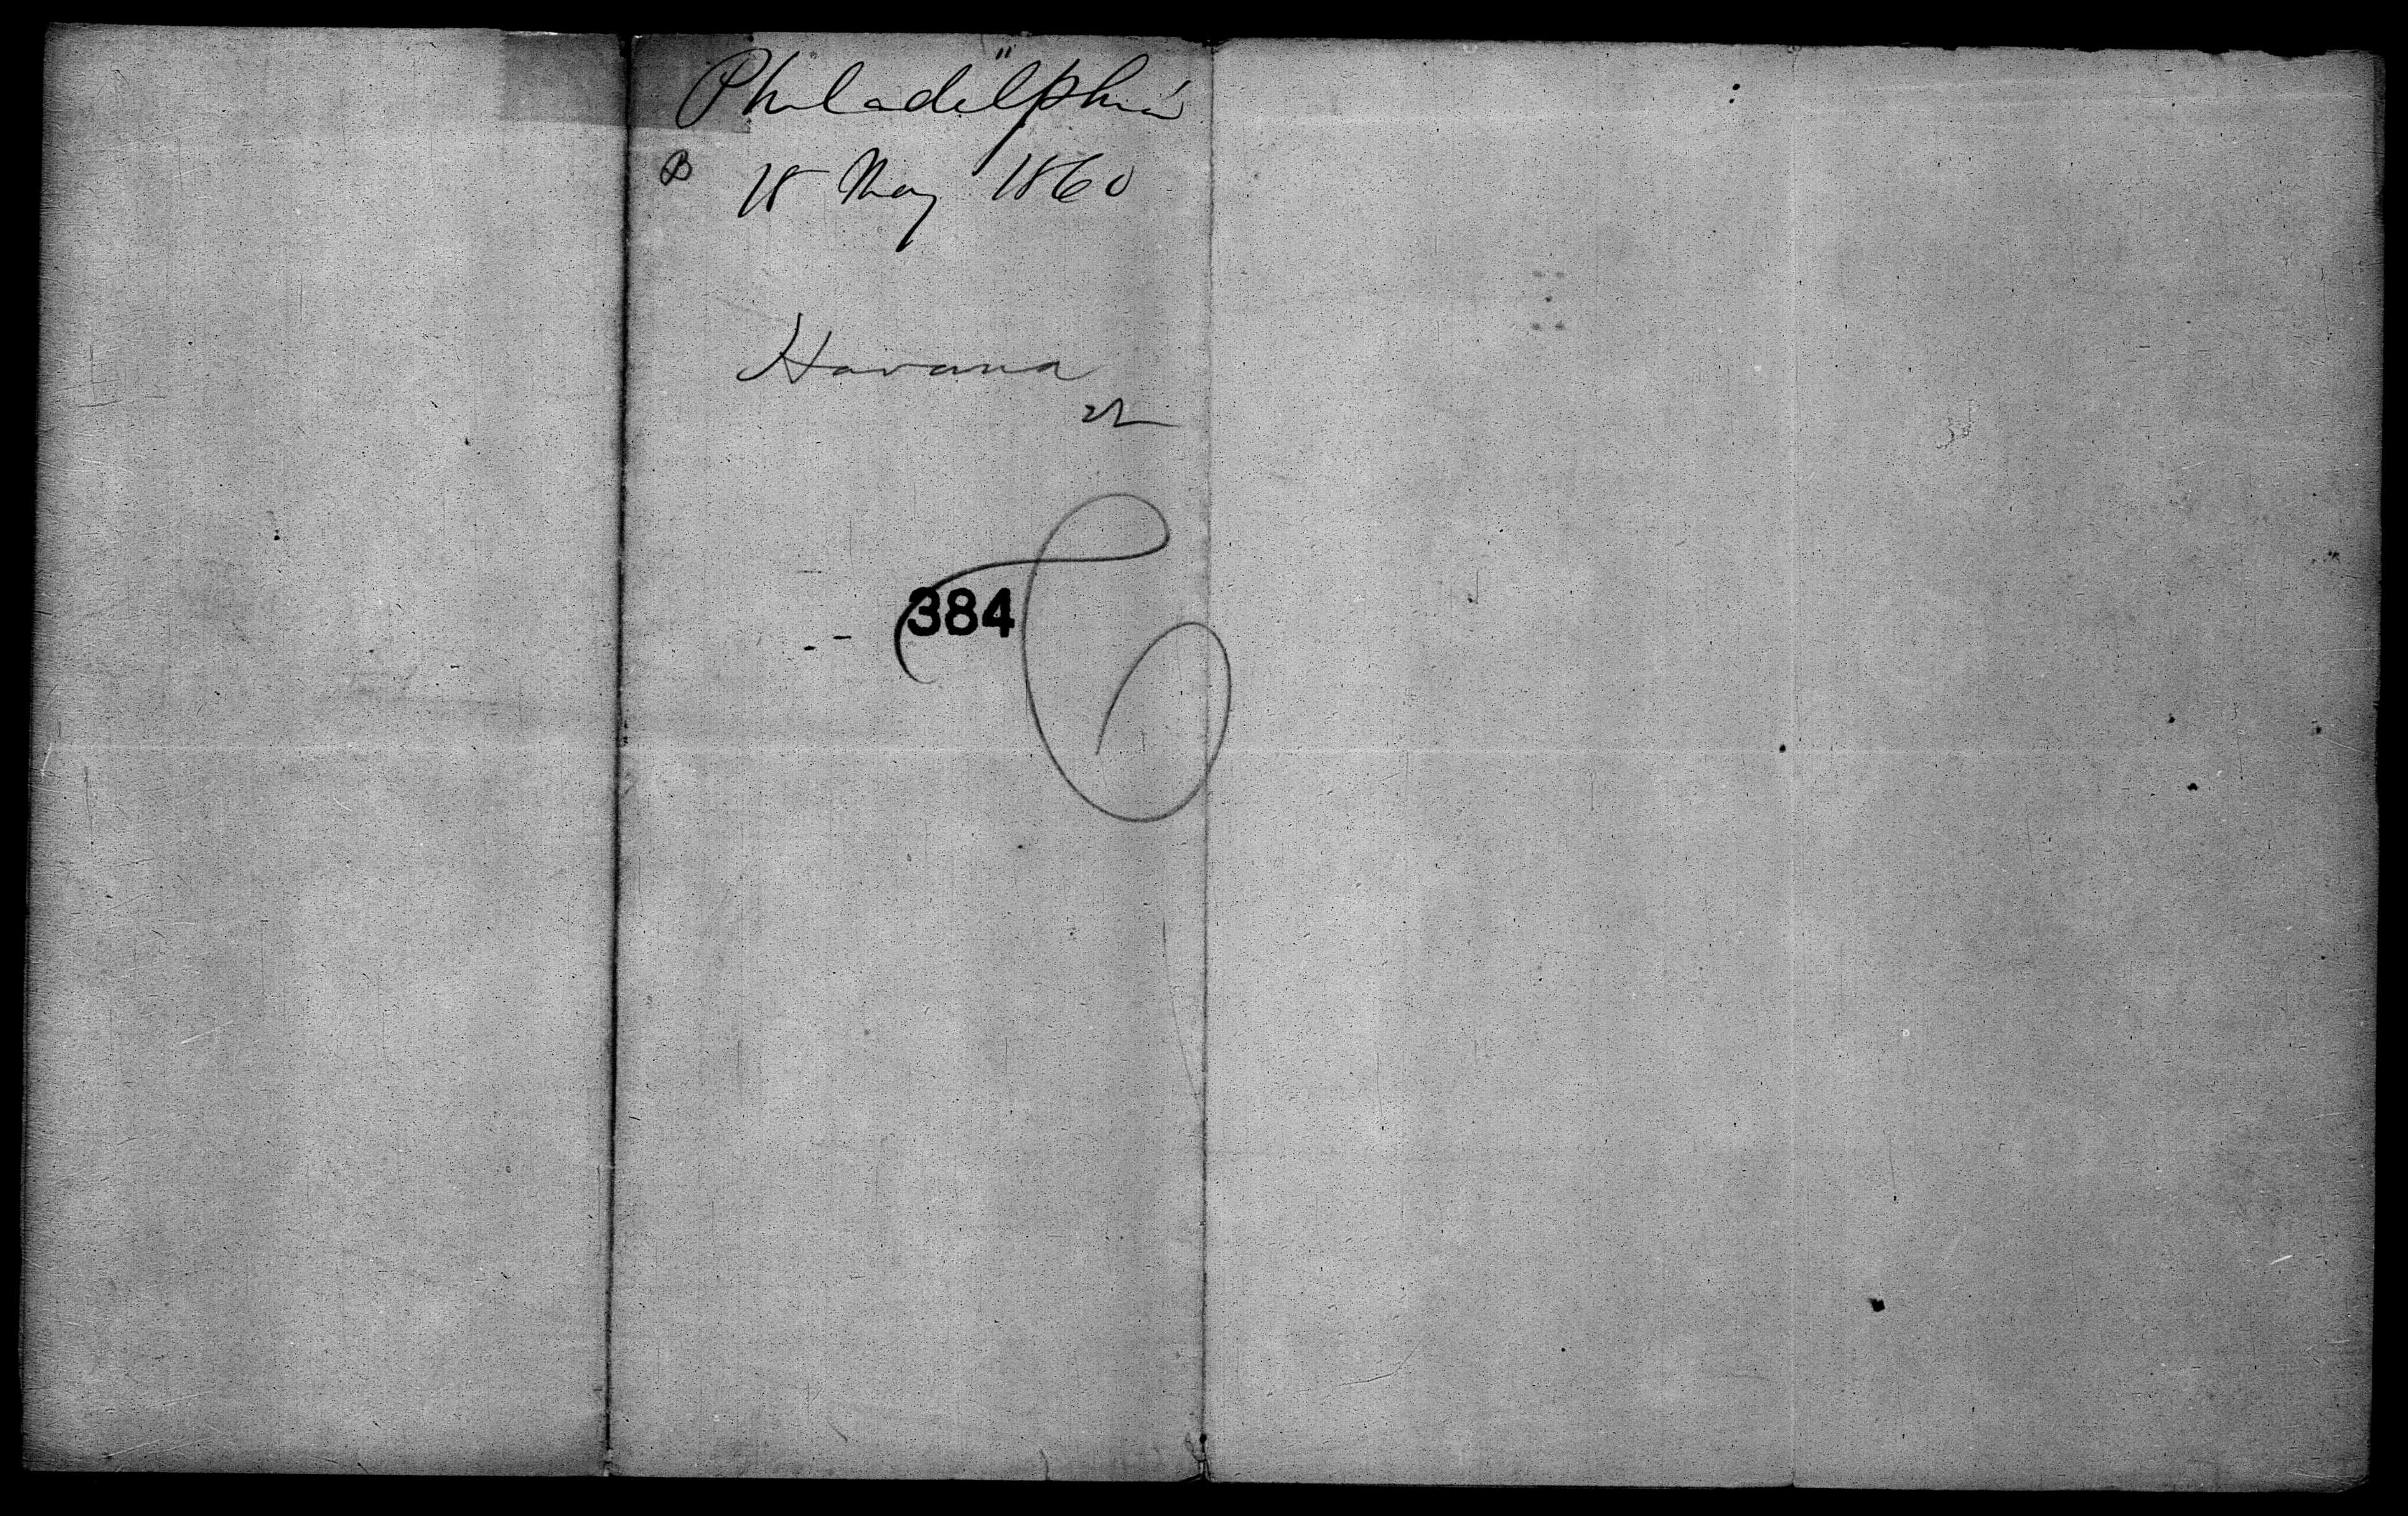 "Philadelphia"
18 May 1860
Havana
384